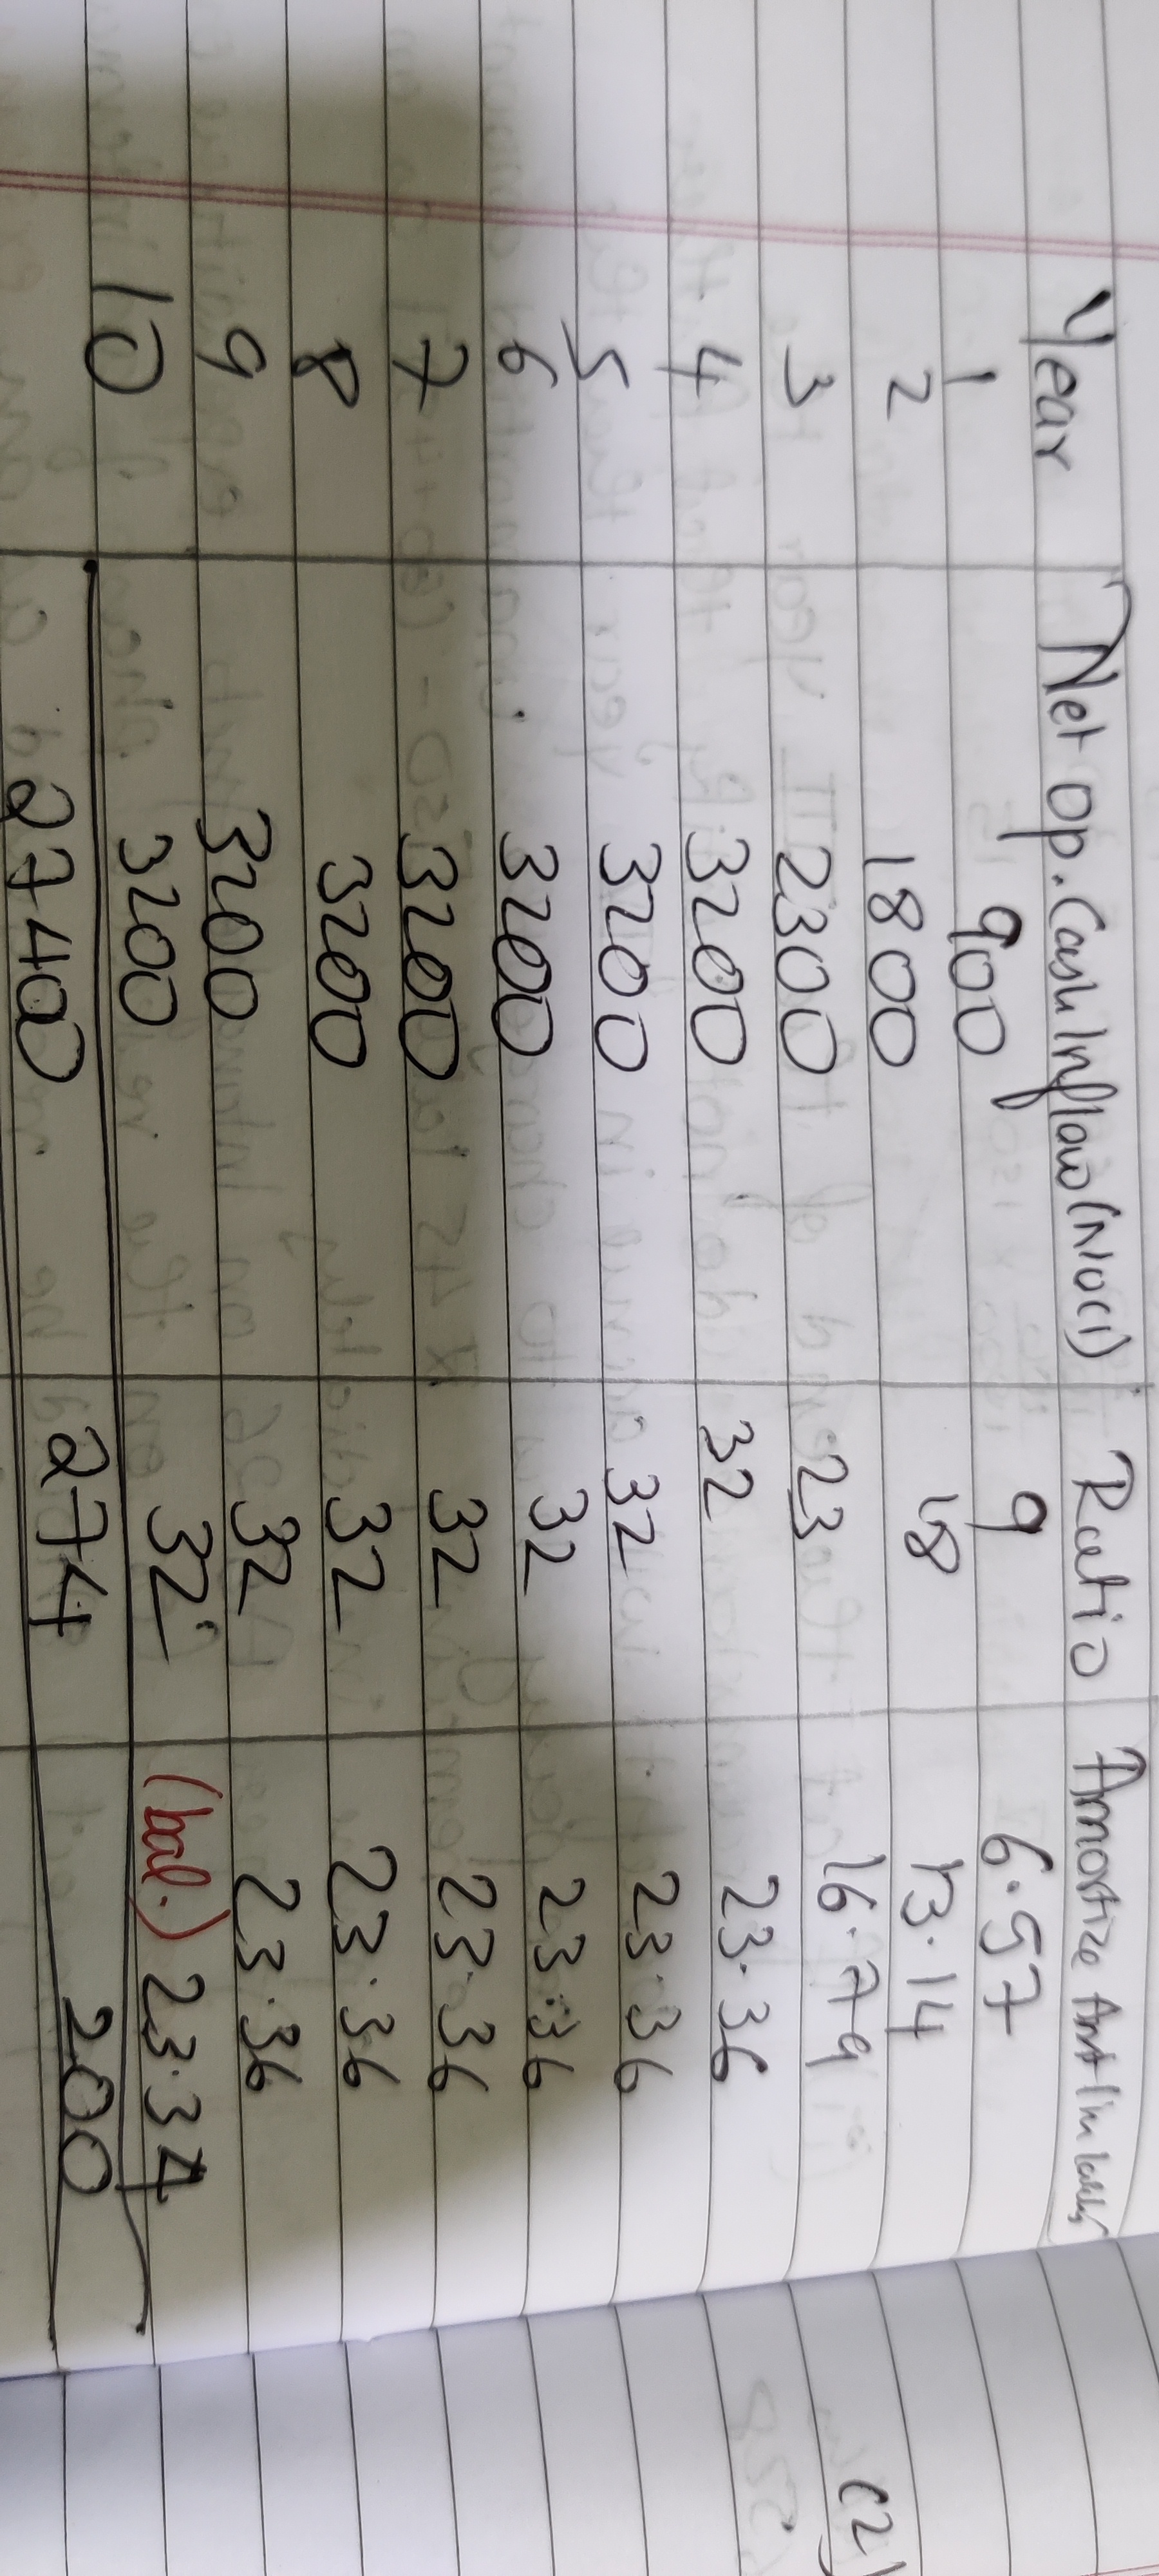 Year Net op. Cash Inflow (NOCI) Ratio Amortize Amt (in lakhs)
1 900 9 6.57
2 1800 18 13.14
3 2300 23 16.79
4 3200 32 23.36
5 3200 32 23.36
6 3200 32 23.36
7 3200 32 23.36
8 3200 32 23.36
9 3200 32 23.36
10 3200 32 (bal.) 23.34
27400 274 200
(2)